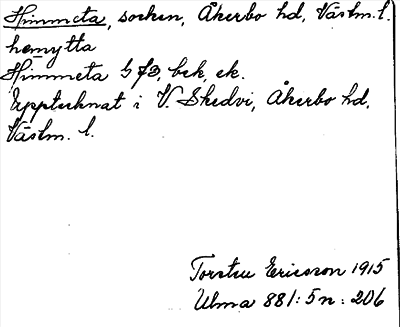 Himmeta, socken, Åkerbo hd, Västm. l.
hemytta
Himmeta G FD, bek, ek.
Upptecknat i V. Skedvi, Åkerbo hd,
Västm. l.
Torsten Ericsson 1915
Ulma 881:5 n: 206